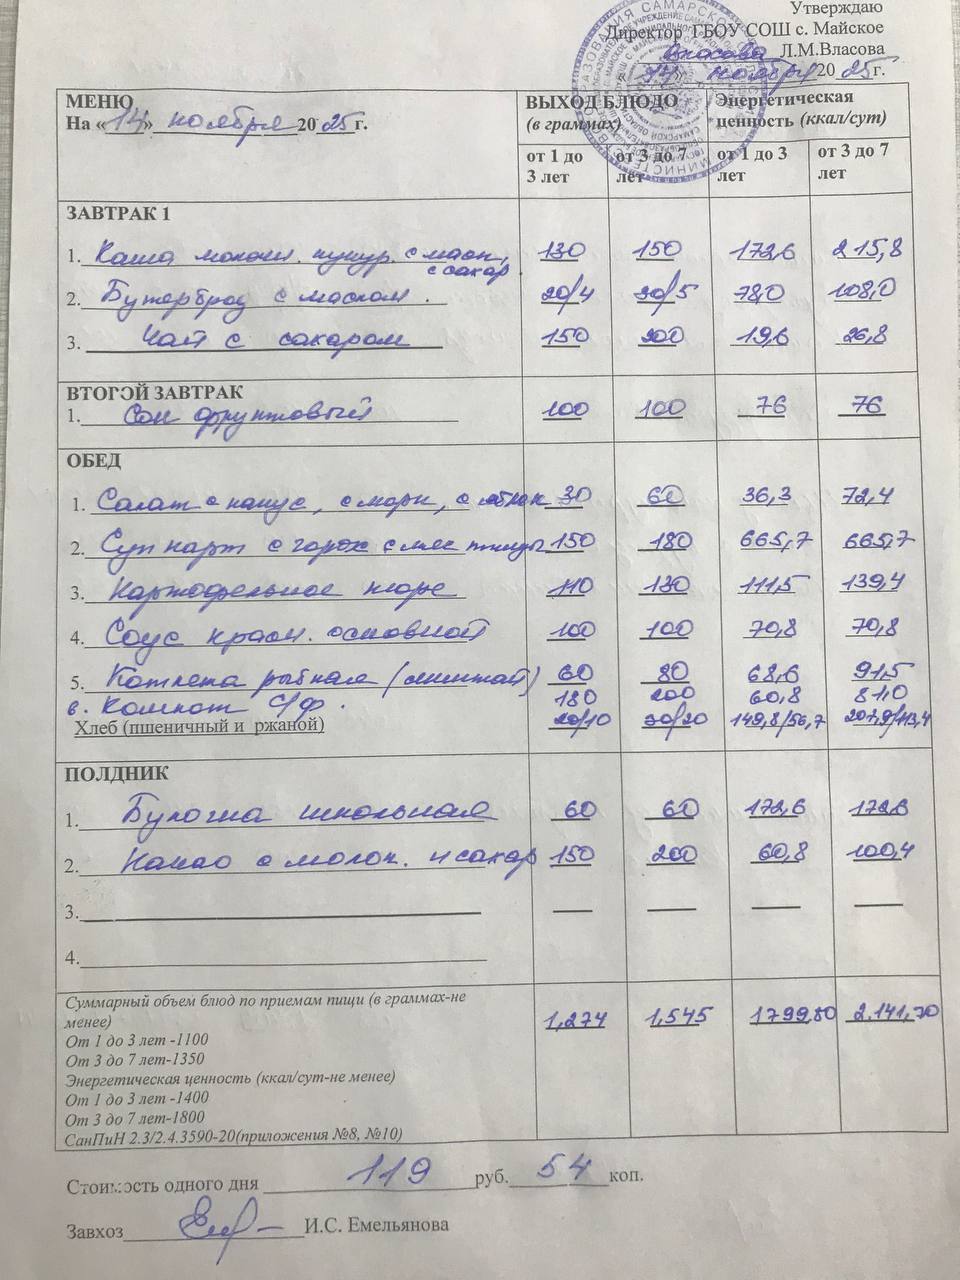 Утверждаю
Директор ГБОУ СОШ с. Майское
Власова Л.М.Власова
«14» ноября 2025г.
МЕНЮ
На «14» ноября 2025 г.
ВЫХОД БЛЮДО (в граммах)
Энергетическая ценность (ккал/сут)
от 1 до 3 лет от 3 до 7 лет от 1 до 3 лет от 3 до 7 лет
ЗАВТРАК 1
1. Каша молочн. кукур. с масл, 130 150 172,6 215,8
с сахар
2. Бутерброд с маслом. 20/4 30/5 78,0 108,0
3. Чай с сахаром 150 200 19,6 26,8
ВТОРОЙ ЗАВТРАК
1. Сок фруктовый 100 100 76 76
ОБЕД
1. Салат с капус, с морк, с яблок 30 60 36,3 72,4
2. Суп карт с горох с мяс птицы 150 180 665,7 665,7
3. Картофельное пюре 110 130 111,5 139,4
4. Соус красн. основной 100 100 70,8 70,8
5. Котлета рыбная (минтай) 60 80 68,6 91,5
6. Компот С/Ф. 180 200 60,8 81,0
Хлеб (пшеничный и ржаной) 20/10 30/20 149,8/56,7
ПОЛДНИК
1. Булочка школьная 60 60 172,6 172,6
2. Какао с молок. и сахар 150 200 60,8 100,4
3. — — — —
4.
Суммарный объем блюд по приемам пищи (в граммах-не
менее) 1,274 1,545 1799,80 2.141,70
От 1 до 3 лет -1100
От 3 до 7 лет-1350
Энергетическая ценность (ккал/сут-не менее)
От 1 до 3 лет -1400
От 3 до 7 лет-1800
СанПиН 2.3/2.4.3590-20(приложения №8, №10)
Стоимость одного дня 119 руб. 54 коп.
Завхоз И.С. Емельянова